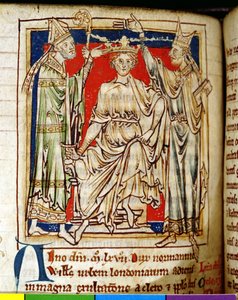 Anno dñi. m̄. lxvii. Dux normannoꝝ
Wills urbem londoniarum adiens
in magna exultatione a clero ⁊ pplo